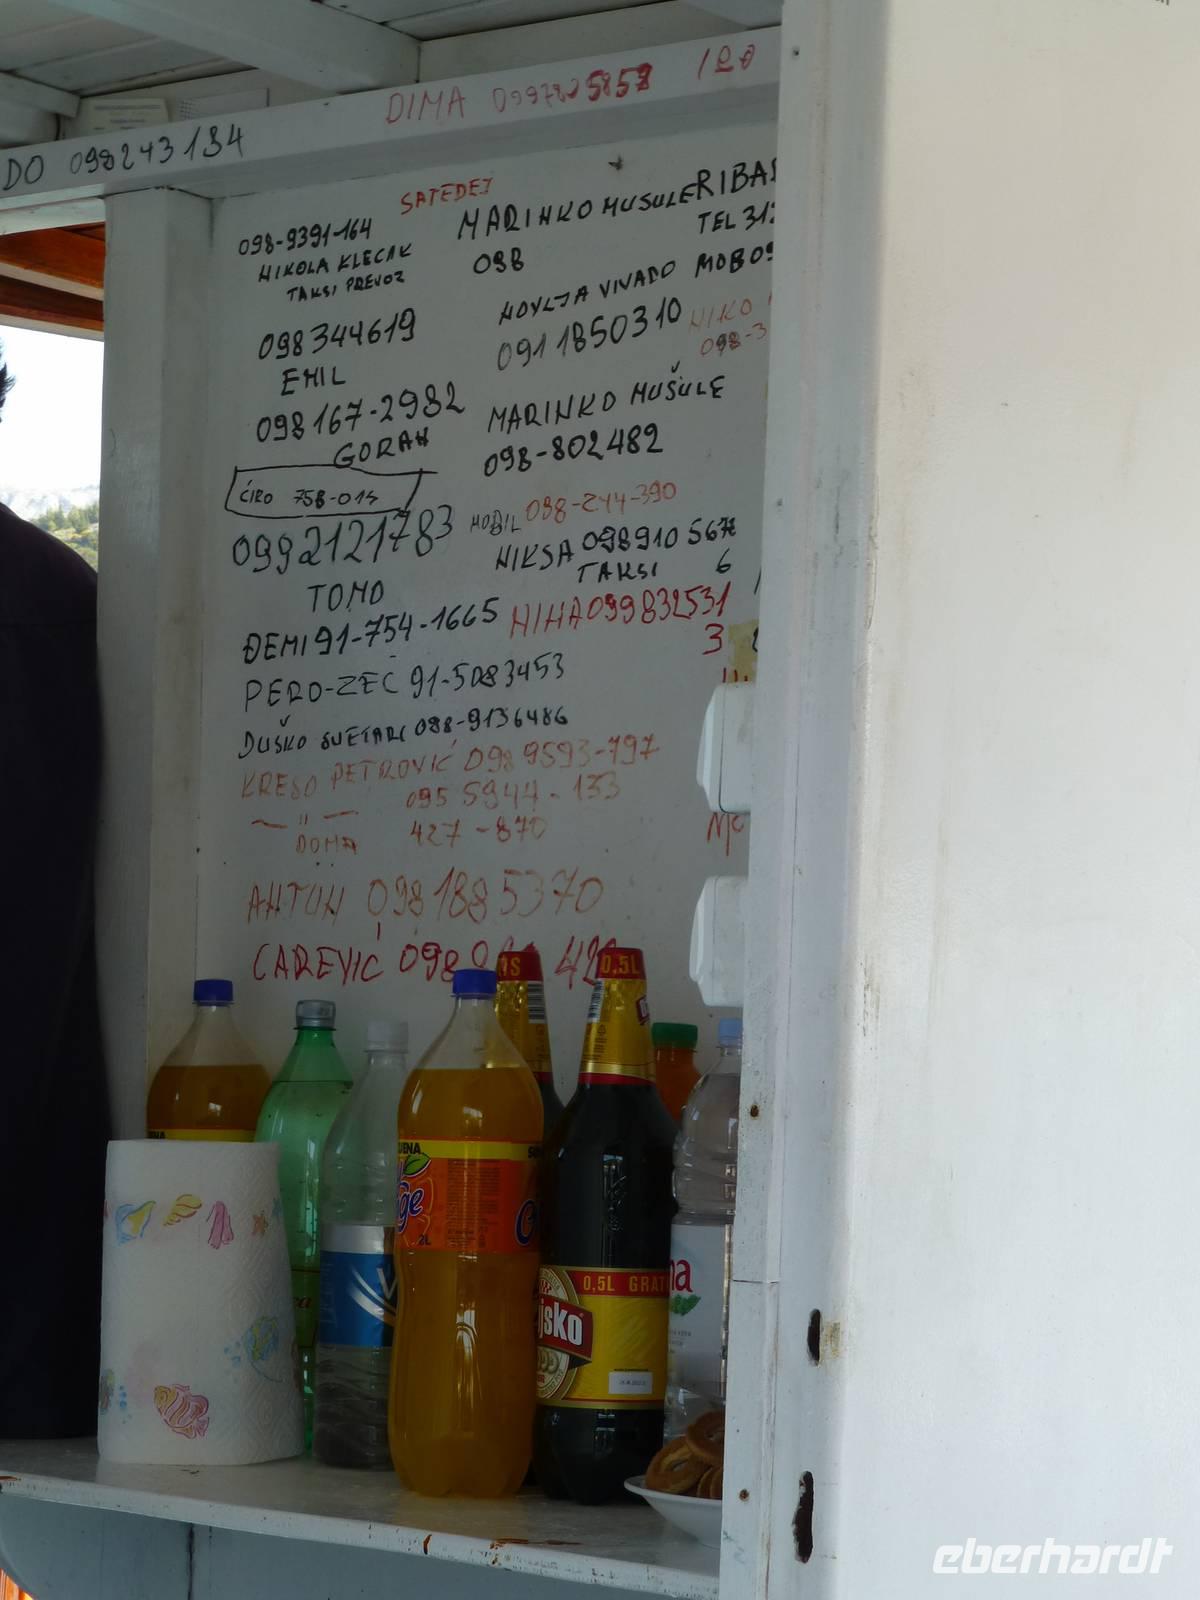 DIMA
DO 098243134
SATEDEJ
098-9391-164
NIKOLA KLECAK
TAKSI PREVOZ
MARINKO MUSULE
098
RIBA
TEL
MOB 09
NOVLJA VIVADO
0911850310
NIKO
098-3
098344619
EMIL
098167-2982
GORAN
MARINKO MUŠULE
098-802482
ĆIRO 758-014
0992121783
TOMO
MOBIL 098-244-390
NIKSA 098910 567
6
TAKSI
ĐEMI 91-754-1665
NINA 099832531
3
PERO-ZEC 91-5083453
DUŠKO SVETARI 098-9136486
KRESO PETROVIĆ 098 9593-797
— " — 095 5944-133
DOMA 427-870
ANTUN 0981885370
CAREVIĆ 098
42
0,5L
2L
0,5L GRATI
jsko
na
eberhardt